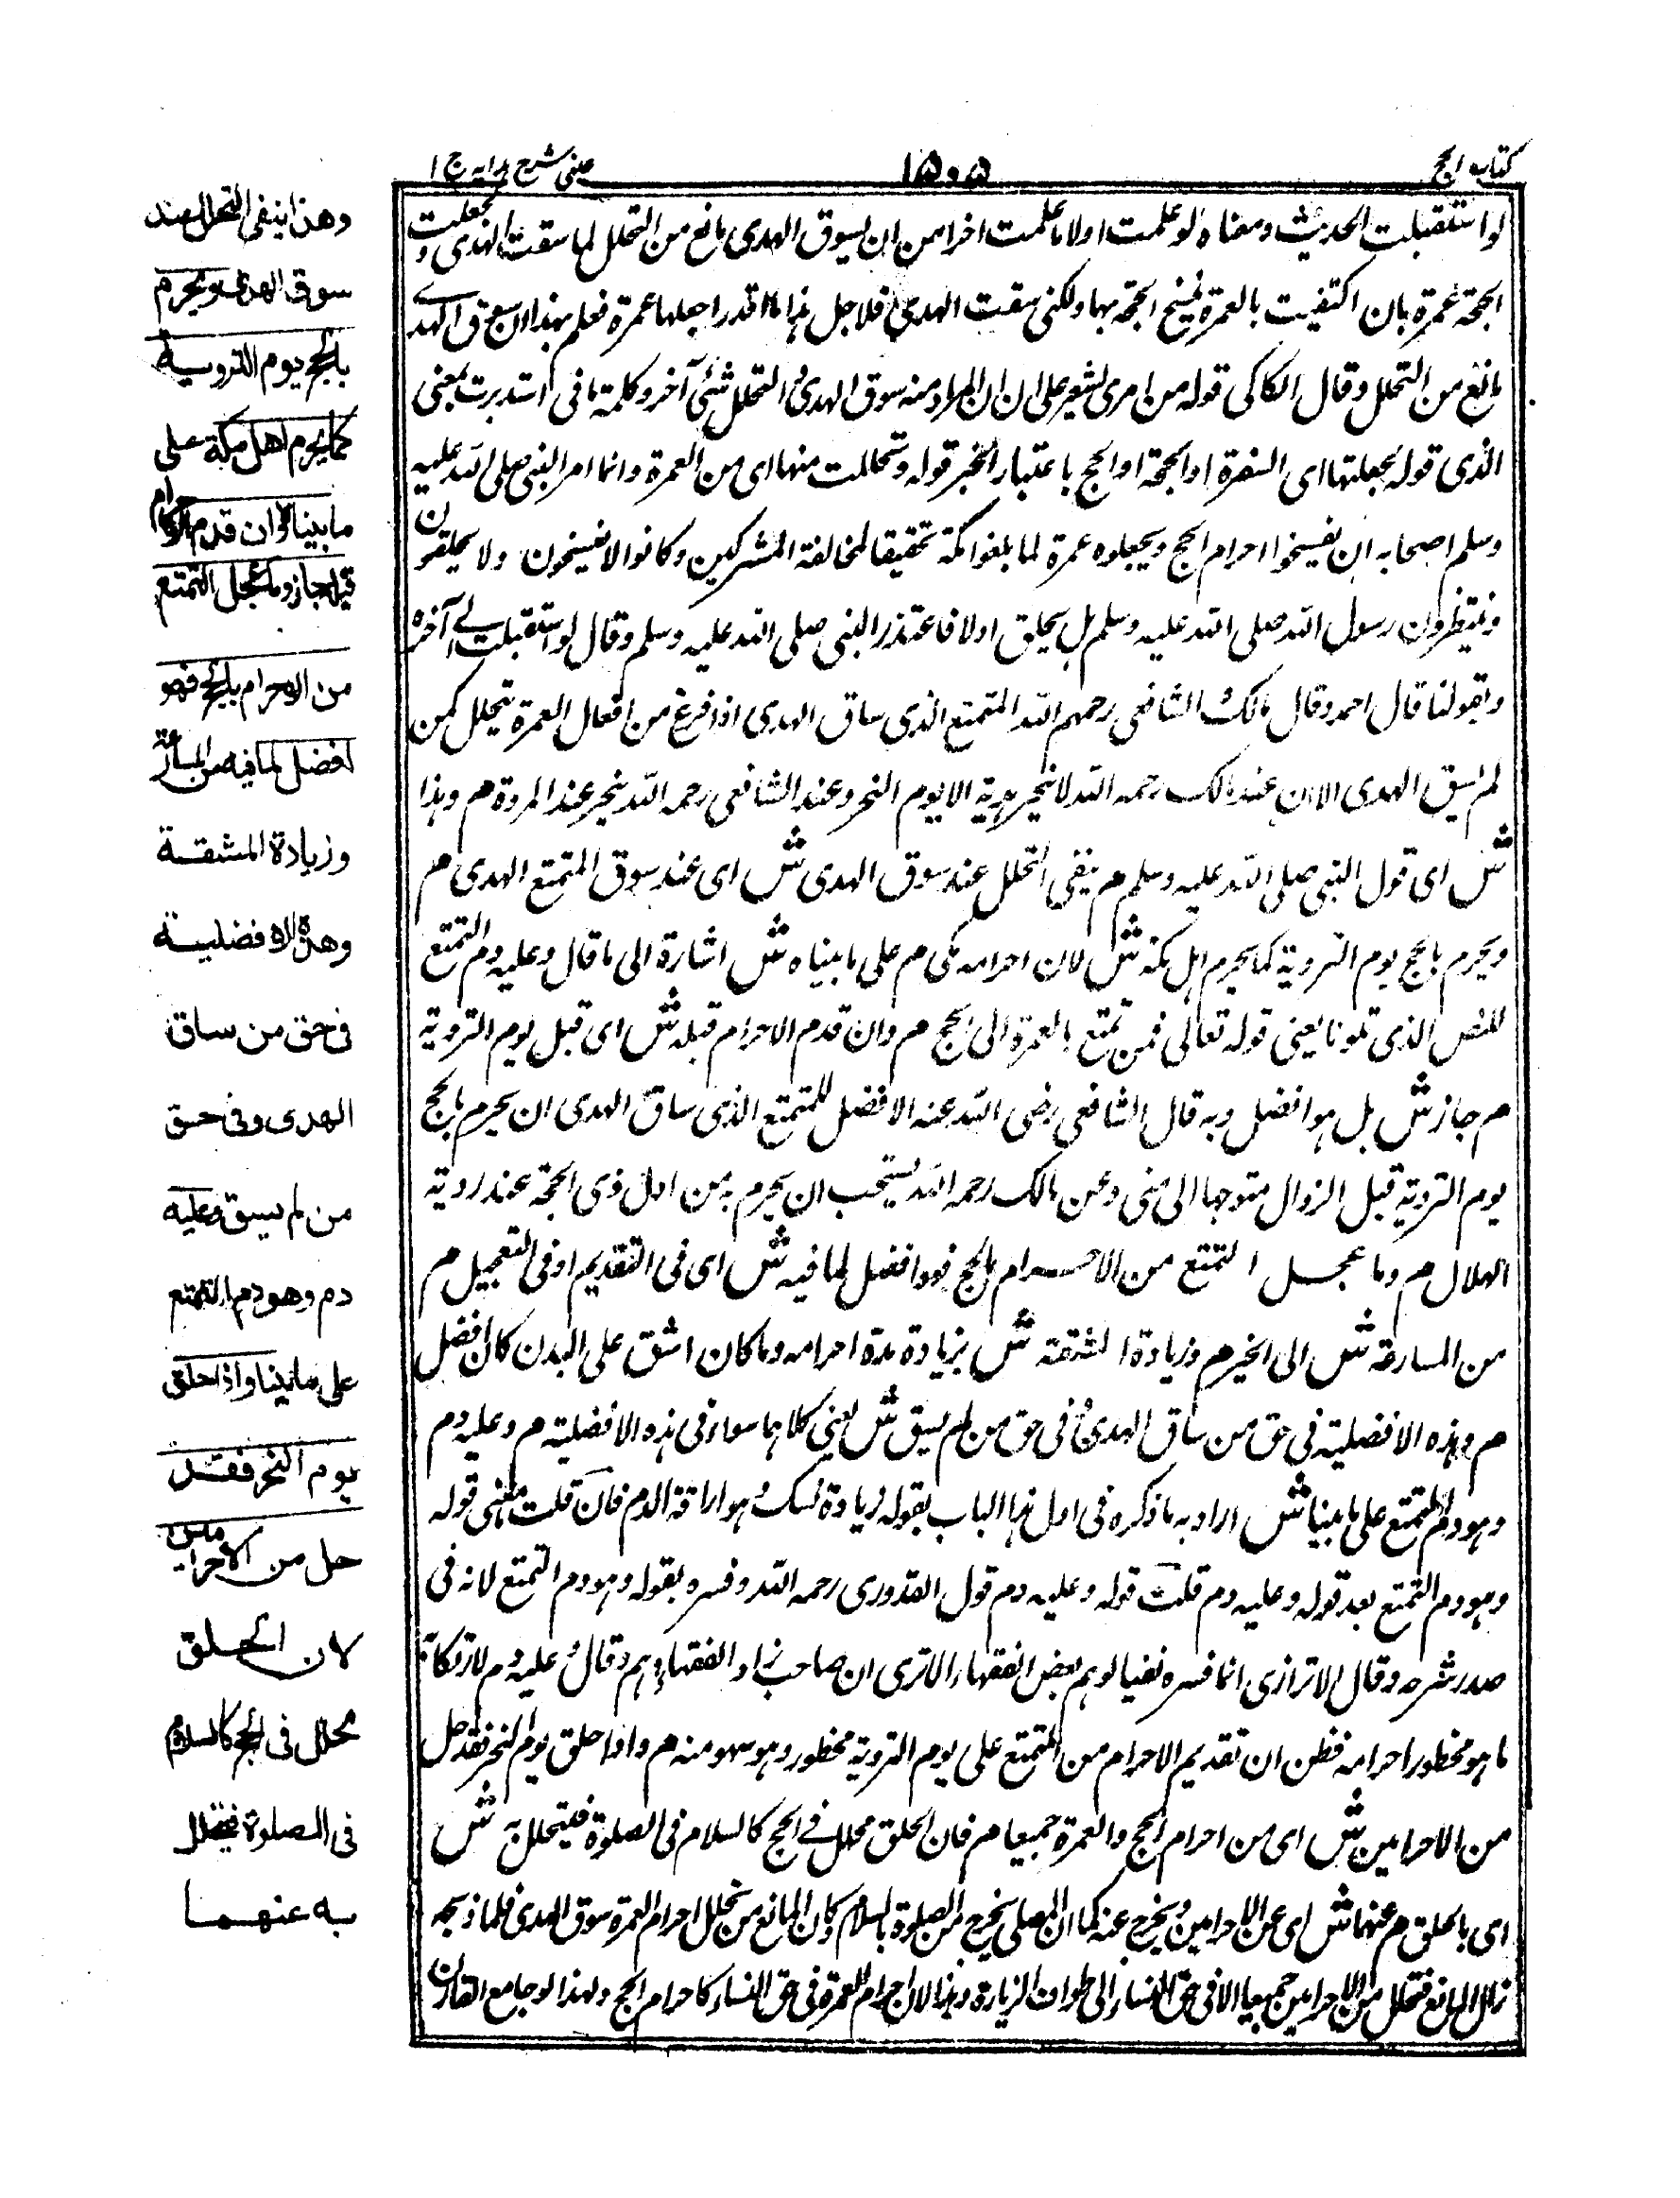 كتاب الحج
١٥٠٥
عينى شرح هدايه ج ١
لو استقبلت الحديث ومعناه لو علمت اولا ما علمت اخرا من ان سوق الهدى مانع من التحلل لما سقت الهدى وجعلت
الحجة عمرة بان اكتفيت بالعمرة بفسخ الحجة بها ولكنى سقت الهدى فلاجل هذا ما اقدر اجعلها عمرة فعلم بهذا ان سوق الهدى
مانع من التحلل وقال الكاكى قوله من امرى يشعر على ان المراد منه سوق الهدى والتحلل شئ آخر وكلمة ما فى استدبرت بمعنى
الذى قوله لجعلتها اى السفرة او الحجة او الحج باعتبار الخبر قوله وتحللت منها اى من العمرة وانما امر النبى صلى الله عليه
وسلم اصحابه ان يفسخوا احرام الحج ويجعلوه عمرة لما بلغوا مكة تحقيقا لمخالفة المشركين وكانوا لا يفسخون ولا يحلقون
وينتظرون رسول الله صلى الله عليه وسلم هل يحلق اولا فاعتذر النبى صلى الله عليه وسلم وقال لو استقبلت الى آخره
وبقولنا قال احمد وقال مالك الشافعى رحمهم الله المتمتع الذى ساق الهدى اذا فرغ من افعال العمرة يتحلل كمن
لم يسق الهدى الا ان عند مالك رحمه الله لا ينحر هديه الا يوم النحر وعند الشافعى رحمه الله ينحر عند المروة م وهذا
ش اى قول النبى صلى الله عليه وسلم م ينفى التحلل عند سوق الهدى ش اى عند سوق المتمتع الهدى م
ويحرم بالحج يوم التروية كما يحرم اهل مكة ش لان احرامه مكى م على ما بيناه ش اشارة الى ما قال وعليه دم التمتع
للنص الذى تلونا يعنى قوله تعالى فمن تمتع بالعمرة الى الحج م وان قدم الاحرام قبله ش اى قبل يوم التروية
م جاز ش بل هو افضل وبه قال الشافعى رضى الله عنه الافضل للمتمتع الذى ساق الهدى ان يحرم بالحج
يوم التروية قبل الزوال متوجها الى منى وعن مالك رحمه الله يستحب ان يحرم به من اول ذى الحجة عند روية
الهلال م وما عجل المتمتع من الاحرام بالحج فهو افضل لما فيه ش اى فى التقديم او فى التعجيل م
من المسارعة ش الى الخير م وزيادة المشقة ش بزيادة مدة احرامه وما كان اشق على البدن كان افضل
م وهذه الافضلية فى حق من ساق الهدى وفى حق من لم يسق ش يعنى كلاهما سواء فى هذه الافضلية م وعليه دم
وهو دم المتمتع على ما بينا ش اراد به ما ذكره فى اول هذا الباب بقوله لزيادة نسك هو اراقة الدم فان قلت ما معنى قوله
وهو دم التمتع بعد قوله وعليه دم قلت قوله وعليه دم قول القدورى رحمه الله وفسره بقوله وهو دم التمتع لانه فى
صدر شرحه وقال الاترازى انما فسره نفيا لوهم بعض الفقهاء الا ترى ان صاحب زاد الفقهاء وهم وقال عليه دم لارتكابه
ما هو محظور احرامه فظن ان تقديم الاحرام من المتمتع على يوم التروية محظور وهو سهو منه م واذا حلق يوم النحر فقد حل
من الاحرامين ش اى من احرام الحج والعمرة جميعا م فان الحلق محلل فى الحج كالسلام فى الصلوة فيتحلل به ش
اى بالحلق م عنهما ش اى عن الاحرامين ويخرج عنه كما ان المصلى يخرج من الصلوة بالسلام وكان المانع من تحلل احرام العمرة سوق الهدى فلما ذبحه
زال المانع فتحلل من الاحرامين جميعا الا فى حق النساء الى طواف الزيارة وهذا لان احرام العمرة فى حق النساء كاحرام الحج ولهذا لو جامع القارن
وهذا ينفى التحلل عند
سوق الهدى ويحرم
بالحج يوم التروية
كما يحرم اهل مكة على
ما بينا وان قدم الاحرام
قبله جاز وما عجل المتمتع
من الاحرام بالحج فهو
افضل لما فيه من المسارعة
وزيادة المشقة
وهذه الافضلية
فى حق من ساق
الهدى وفى حق
من لم يسق وعليه
دم وهو دم التمتع
على ما بينا واذا حلق
يوم النحر فقد
حل من الاحرامين
لان الحلق
محلل فى الحج كالسلام
فى الصلوة فيتحلل
به عنهما